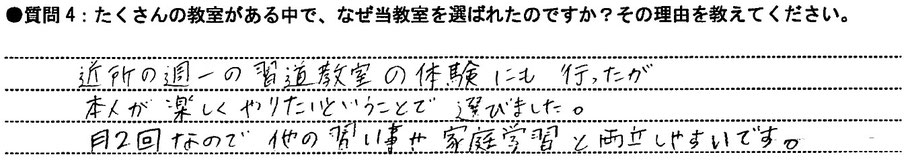 ●質問4：たくさんの教室がある中で、なぜ当教室を選ばれたのですか？その理由を教えてください。
近所の週一の習道教室の体験にも行ったが
本人が楽しくやりたいということで選びました。
月2回なので他の習い事や家庭学習と両立しやすいです。